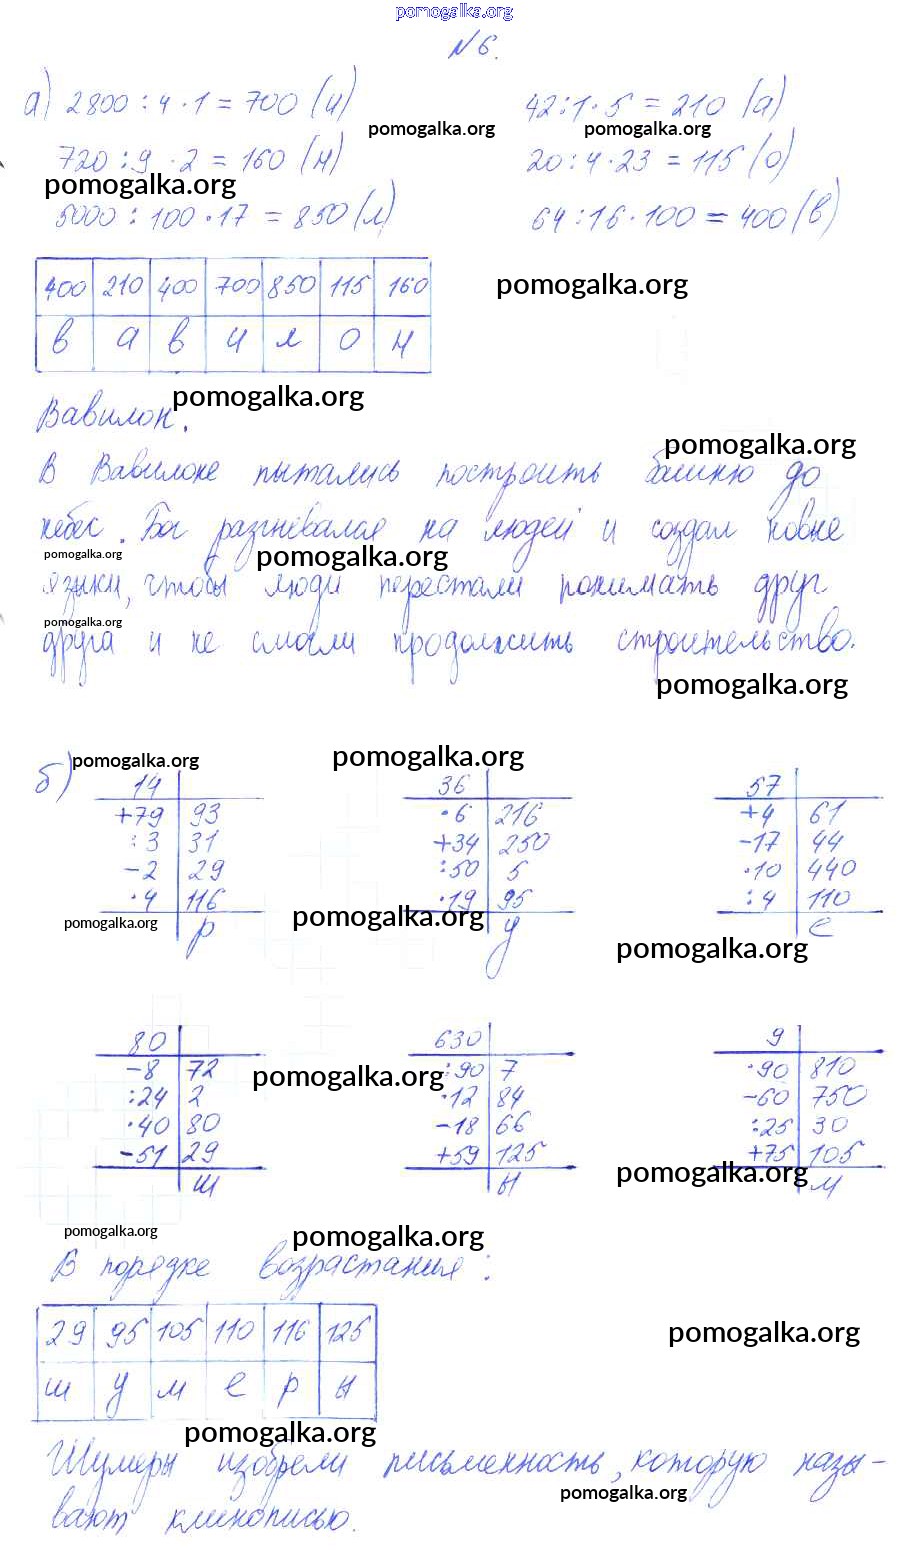 pomogalka.org
№6.
а) 2800 : 4 · 1 = 700 (и) 42 : 1 · 5 = 210 (а)
pomogalka.org pomogalka.org
720 : 9 · 2 = 160 (н) 20 : 4 · 23 = 115 (о)
pomogalka.org
5000 : 100 · 17 = 850 (л) 64 : 16 · 100 = 400 (в)
400 210 400 700 850 115 160
pomogalka.org
в а в и л о н
pomogalka.org
Вавилон.
pomogalka.org
В Вавилоне пытались построить башню до
небес. Бог разгневался на людей и создал новые
pomogalka.org pomogalka.org
языки, чтобы люди перестали понимать друг
pomogalka.org
друга и не смогли продолжить строительство.
pomogalka.org
pomogalka.org pomogalka.org
б) 14 36 57
+79 93 ·6 216 +4 61
:3 31 +34 250 -17 44
-2 29 :50 5 ·10 440
·4 116 ·19 95 :4 110
pomogalka.org pomogalka.org
р у е
pomogalka.org
80 630 9
-8 72 :90 7 ·90 810
pomogalka.org
:24 2 ·12 84 -60 750
·40 80 -18 66 :25 30
-51 29 +59 125 +75 105
pomogalka.org
ш ы м
pomogalka.org pomogalka.org
В порядке возрастания:
29 95 105 110 116 125
pomogalka.org
ш у м е р ы
pomogalka.org
Шумеры изобрели письменность, которую назы-
pomogalka.org
вают клинописью.